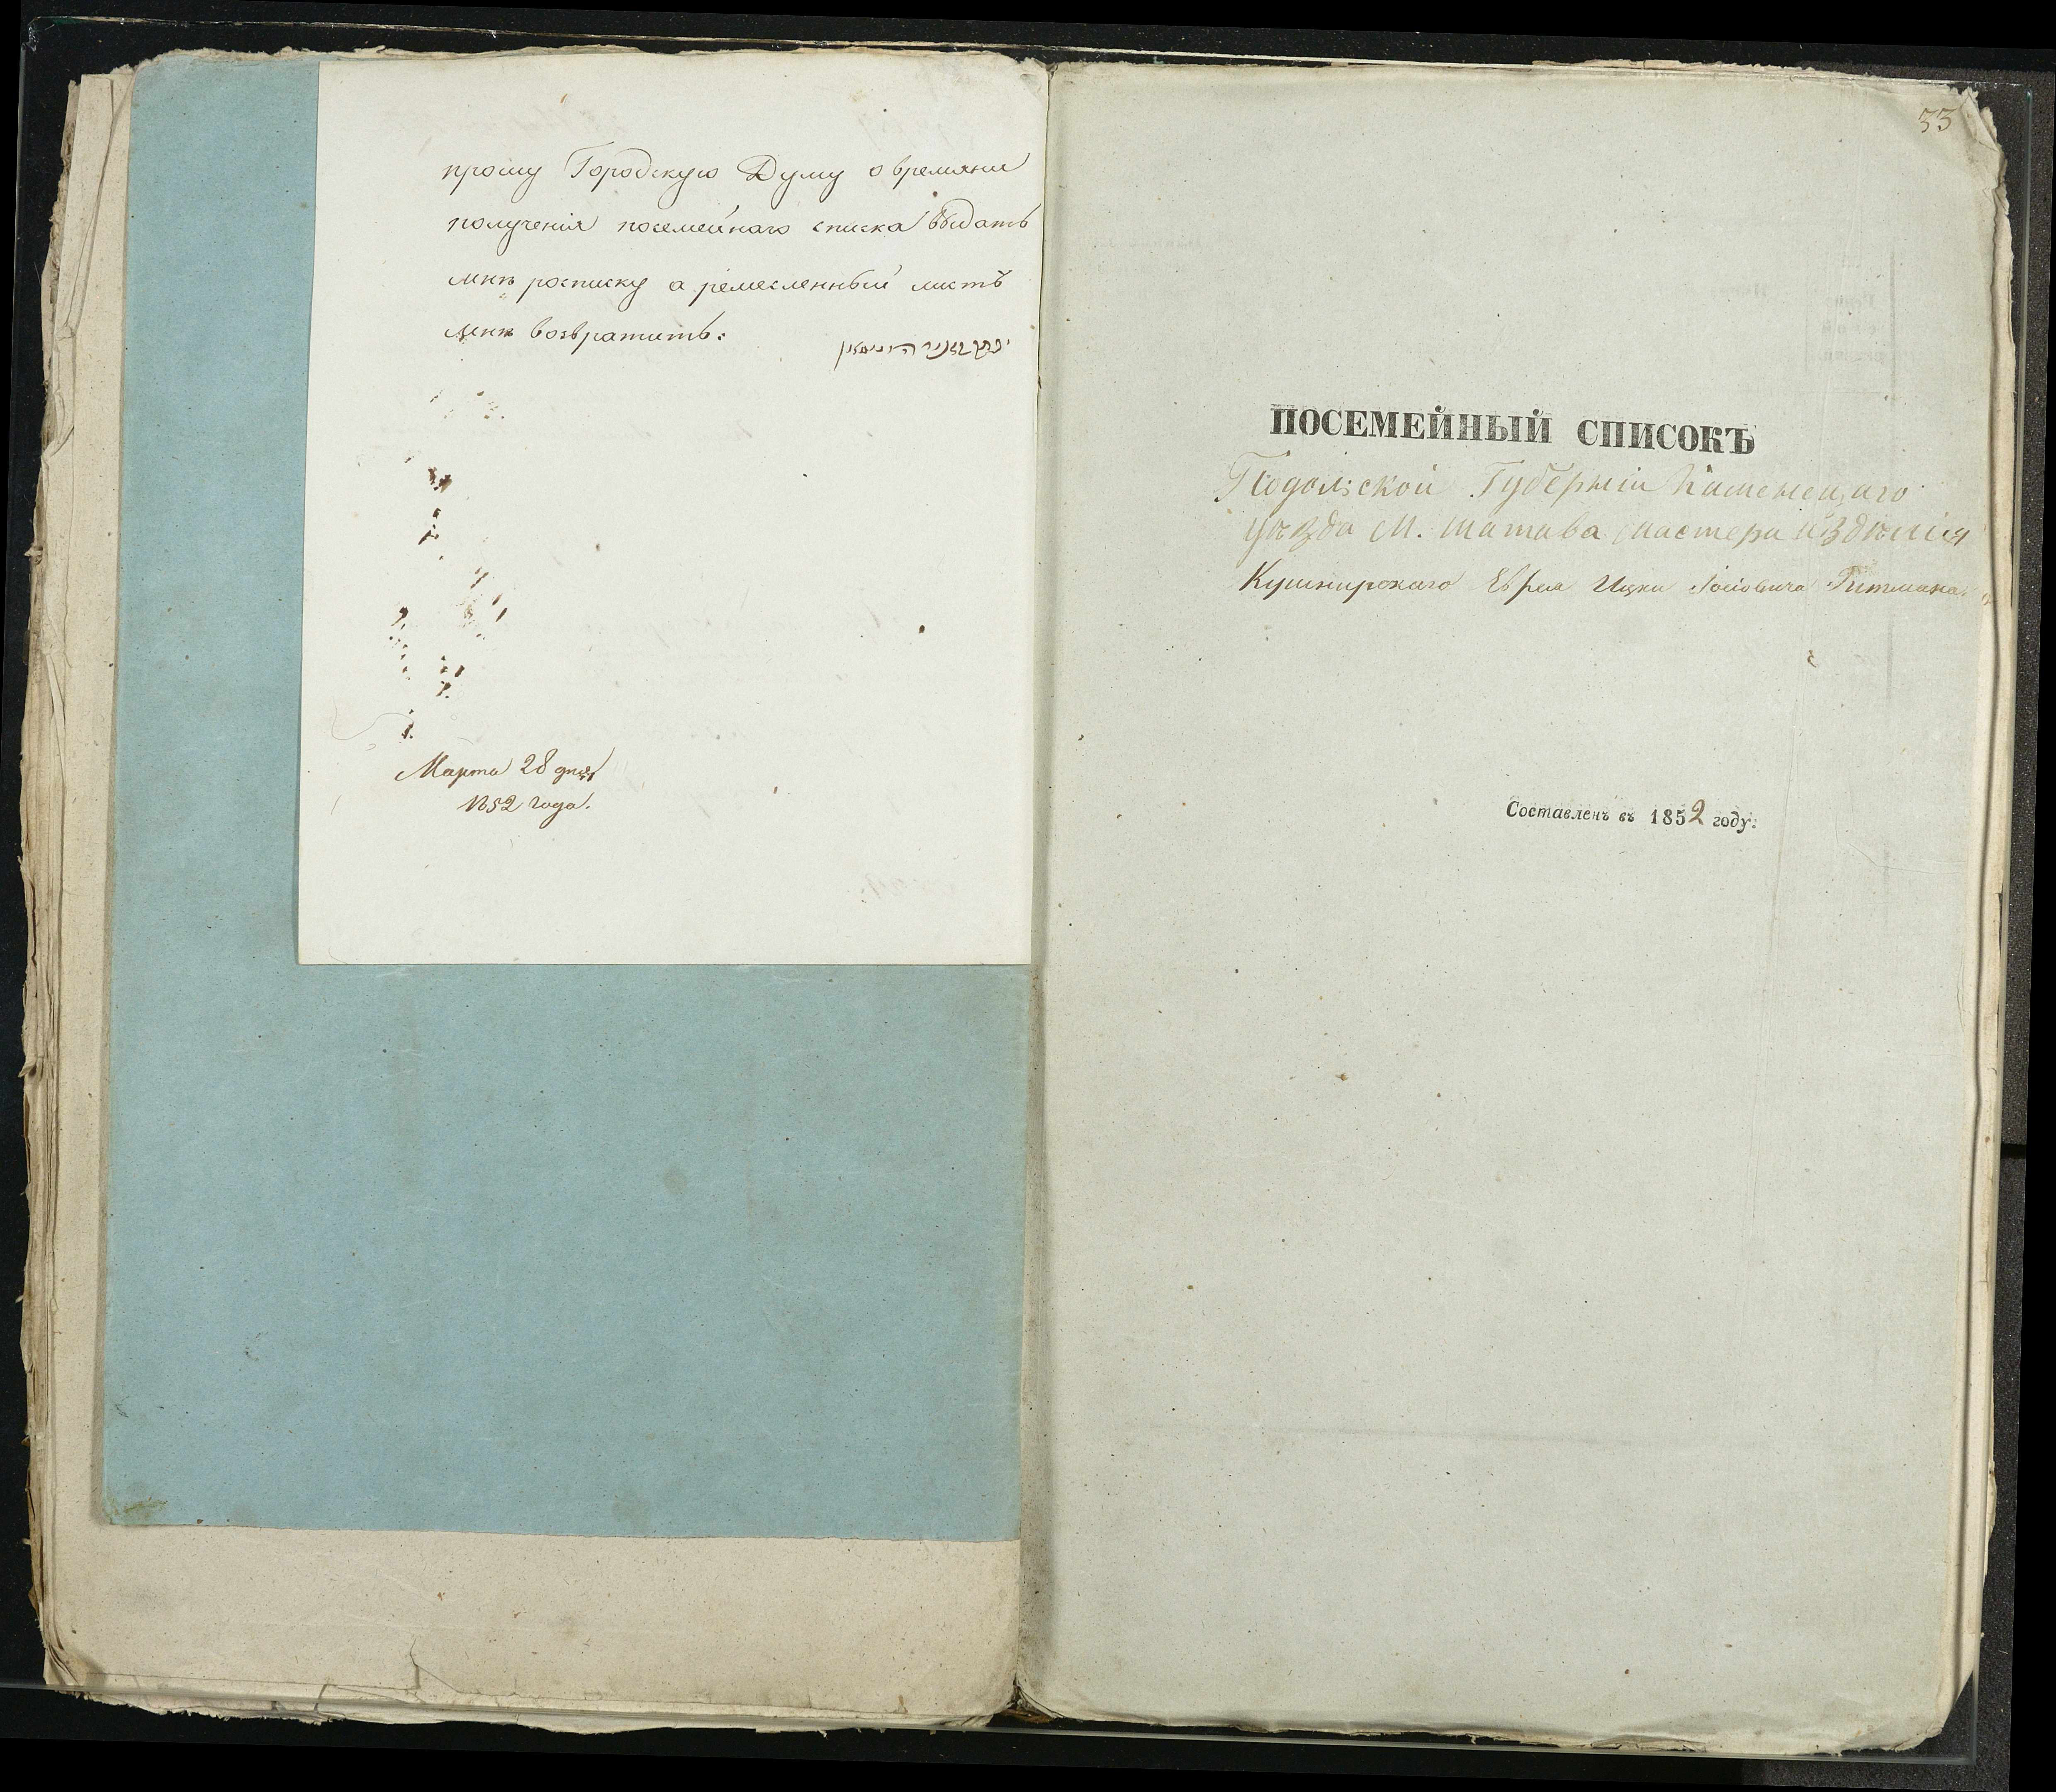 прошу Городскую Думу о времяни
полученія посемейнаго списка выдать
мнѣ росписку а ремесленный листъ
мнѣ возвратить:
Марта 28 дня
1852 года.
33
ПОСЕМЕЙНЫЙ СПИСОКЪ
Подольской Губерніи Каменецкаго
уѣзда М. Шатава мастера издѣлія
Кушнирскаго Еврея Ицки Іосіовича Гитмана
Составленъ въ 1852 году.